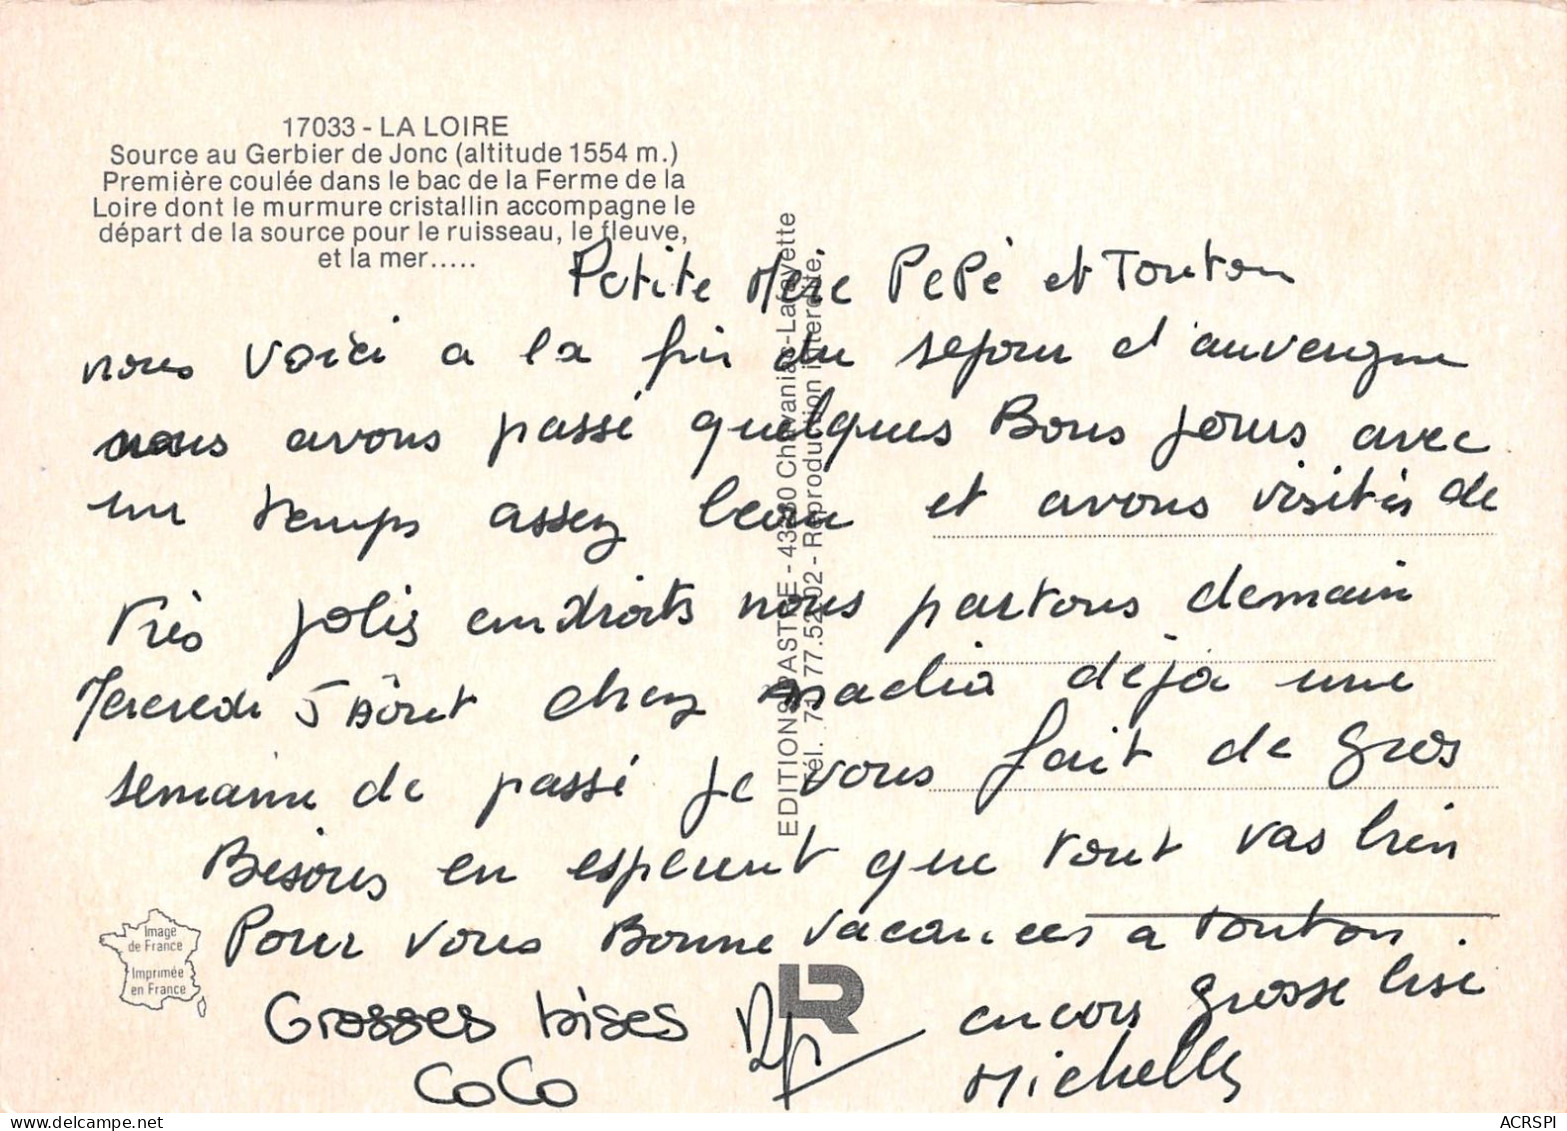 17033 - LA LOIRE
Source au Gerbier de Jonc (altitude 1554 m.)
Première coulée dans le bac de la Ferme de la
Loire dont le murmure cristallin accompagne le
départ de la source pour le ruisseau, le fleuve,
et la mer.....
Petite Mère PePé et Tonton
nous voici a la fin du sejour d'auvergne
nous avons passé quelques Bons jours avec
un temps assez beau et avons visités de
très jolis endroits nous partons demain
Mercredi 5 Août chez nadia déjà une
semaine de passé je vous fait de gros
Bisous en esperent que tout vas bien
Pour vous Bonne vacances a tonton.
Grosses bises
CoCo
encors grosse bise
Michelle
EDITIONS - 43 Chavaniac-Lafayette
Tél. 71.77.52.02 - Reproduction interdite.
Image
de France
Imprimée
en France
LR
ACRSPI